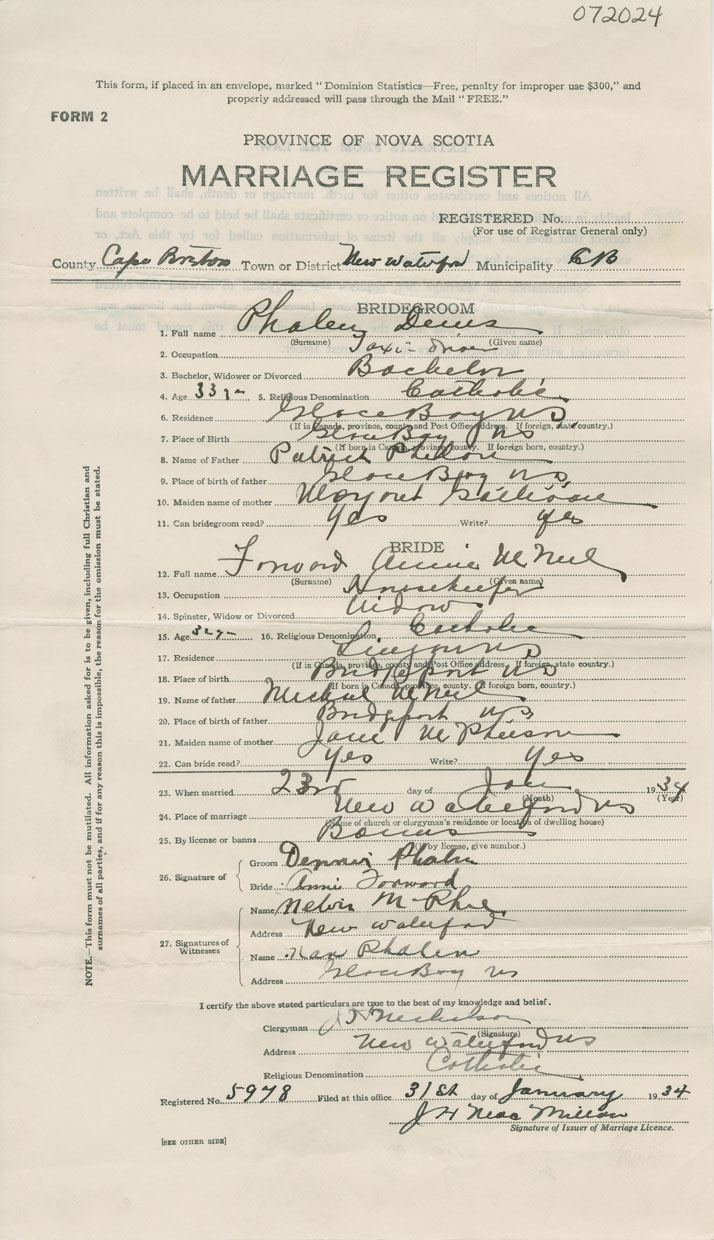 072024
This form, if placed in an envelope, marked "Dominion Statistics—Free, penalty for improper use $300," and
properly addressed will pass through the Mail "FREE."
FORM 2
PROVINCE OF NOVA SCOTIA
MARRIAGE REGISTER
REGISTERED No.
(For use of Registrar General only)
County Cape Breton Town or District New Waterford Municipality C B
BRIDEGROOM
1. Full name Phalen Denis
(Surname) (Given name)
2. Occupation Taxi-Driver
3. Bachelor, Widower or Divorced Bachelor
4. Age 33 yr 5. Religious Denomination Catholic
6. Residence Glace Bay N S
(If in Canada, province, county and Post Office address. If foreign, state country.)
7. Place of Birth Glace Bay N S
(If born in Canada, province, county. If foreign born, country.)
8. Name of Father Patrick Phalen
9. Place of birth of father Glace Bay N S
10. Maiden name of mother Margaret
11. Can bridegroom read? Yes Write? yes
BRIDE
12. Full name Forward Annie McNeil
(Surname) (Given name)
13. Occupation Housekeeper
14. Spinster, Widow or Divorced Widow
15. Age 32 yr 16. Religious Denomination Catholic
17. Residence Lingan N S
(If in Canada, province, county and Post Office address. If foreign, state country.)
18. Place of birth Bridgeport N S
(If born in Canada, province, county. If foreign born, country.)
19. Name of father Michael McNeil
20. Place of birth of father Bridgeport N S
21. Maiden name of mother Jane McPherson
22. Can bride read? Yes Write? Yes
23. When married 23rd day of Jan 1934
(Month) (Year)
24. Place of marriage New Waterford NS
(Name of church or clergyman's residence or location of dwelling house)
25. By license or banns Banns
(If by license, give number.)
26. Signature of
Groom Dennis Phalen
Bride Annie Forward
27. Signatures of Witnesses
Name Melvin McPhee
Address New Waterford
Name Phalen
Address Glace Bay NS
I certify the above stated particulars are true to the best of my knowledge and belief.
Clergyman Nicholson
(Signature)
Address New Waterford NS
Religious Denomination Catholic
Registered No. 5978 Filed at this office 31st day of January 1934
J H MacMillan
Signature of Issuer of Marriage Licence.
[SEE OTHER SIDE]
NOTE.—This form must not be mutilated. All information asked for is to be given, including full Christian and
surnames of all parties, and if for any reason this is impossible, the reason for the omission must be stated.